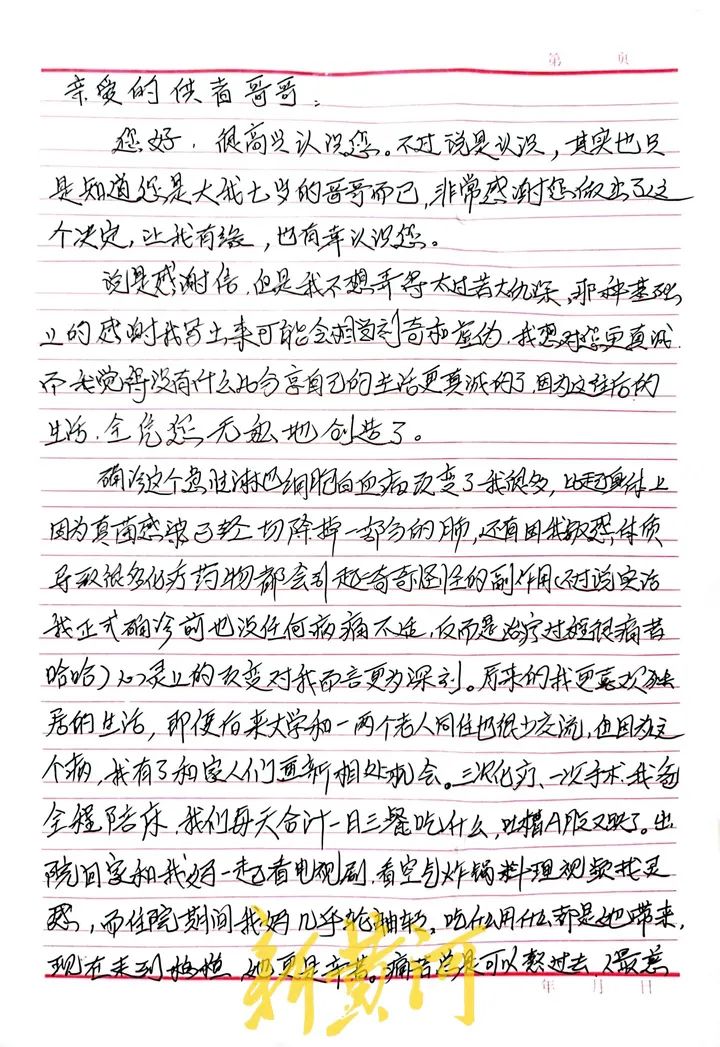 第 页
亲爱的供者哥哥：
您好，很高兴认识您。不过说是认识，其实也只
是知道您是大我七岁的哥哥而已，非常感谢您做出了这
个决定，让我有缘，也有幸认识您。
说是感谢信，但是我不想弄得太过苦大仇深，那种基础
上的感谢我写出来可能会相当刻奇和虚伪，我想对您更真诚，
而我觉得没有什么比分享自己的生活更真诚的了，因为这往后的
生活，全凭您无私地创造了。
确诊这个急性淋巴细胞白血病改变了我很多，比起身体上
因为真菌感染了轻切除掉一部分的肺，还有因我敏感体质
导致很多化疗药物都会引起奇奇怪怪的副作用（不过说实话
我正式确诊前也没任何病痛不适，反而是治疗过程很痛苦
哈哈）心灵上的改变对我而言更为深刻。原来的我更喜欢独
居的生活，即便后来大学和一两个老人同住也很少交流，但因为这
个病，我有了和家人们重新相处机会。三次化疗、一次手术，我爸
全程陪床，我们每天合计一日三餐吃什么，吐槽A股又跌了。出
院回家和我妈一起看电视剧，看空气炸锅料理视频找灵
感，而住院期间我妈几乎轮轴转，吃什么用什么都是她带来，
现在来到 她更是辛苦。痛苦总是可以熬过去，但最意
年 月 日
新黄河